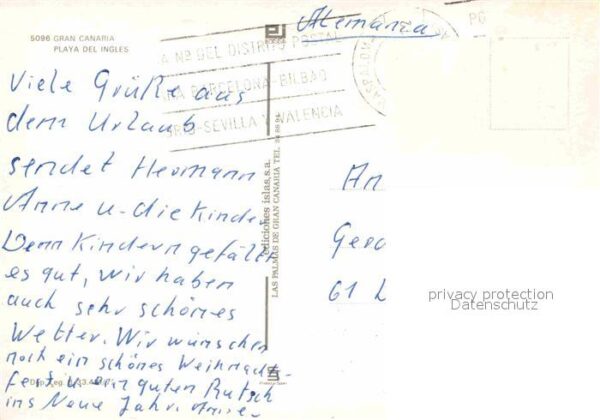 5096 GRAN CANARIA
PLAYA DEL INGLES
Alemania
Nº DEL DISTRITO POSTAL
BARCELONA-BILBAO
SEVILLA Y VALENCIA
Viele Grüße aus
dem Urlaub
sendet Hermann
Anne u. die Kinder
Denn Kindern gefällt
es gut, wir haben
auch sehr schönes
Wetter. Wir wünschen
noch ein schönes Weihnacht-
fest u. ein guten Rutsch
ins Neue Jahr.
ediciones islas, s.a.
LAS PALMAS DE GRAN CANARIA TEL.
An
61
privacy protection
Datenschutz